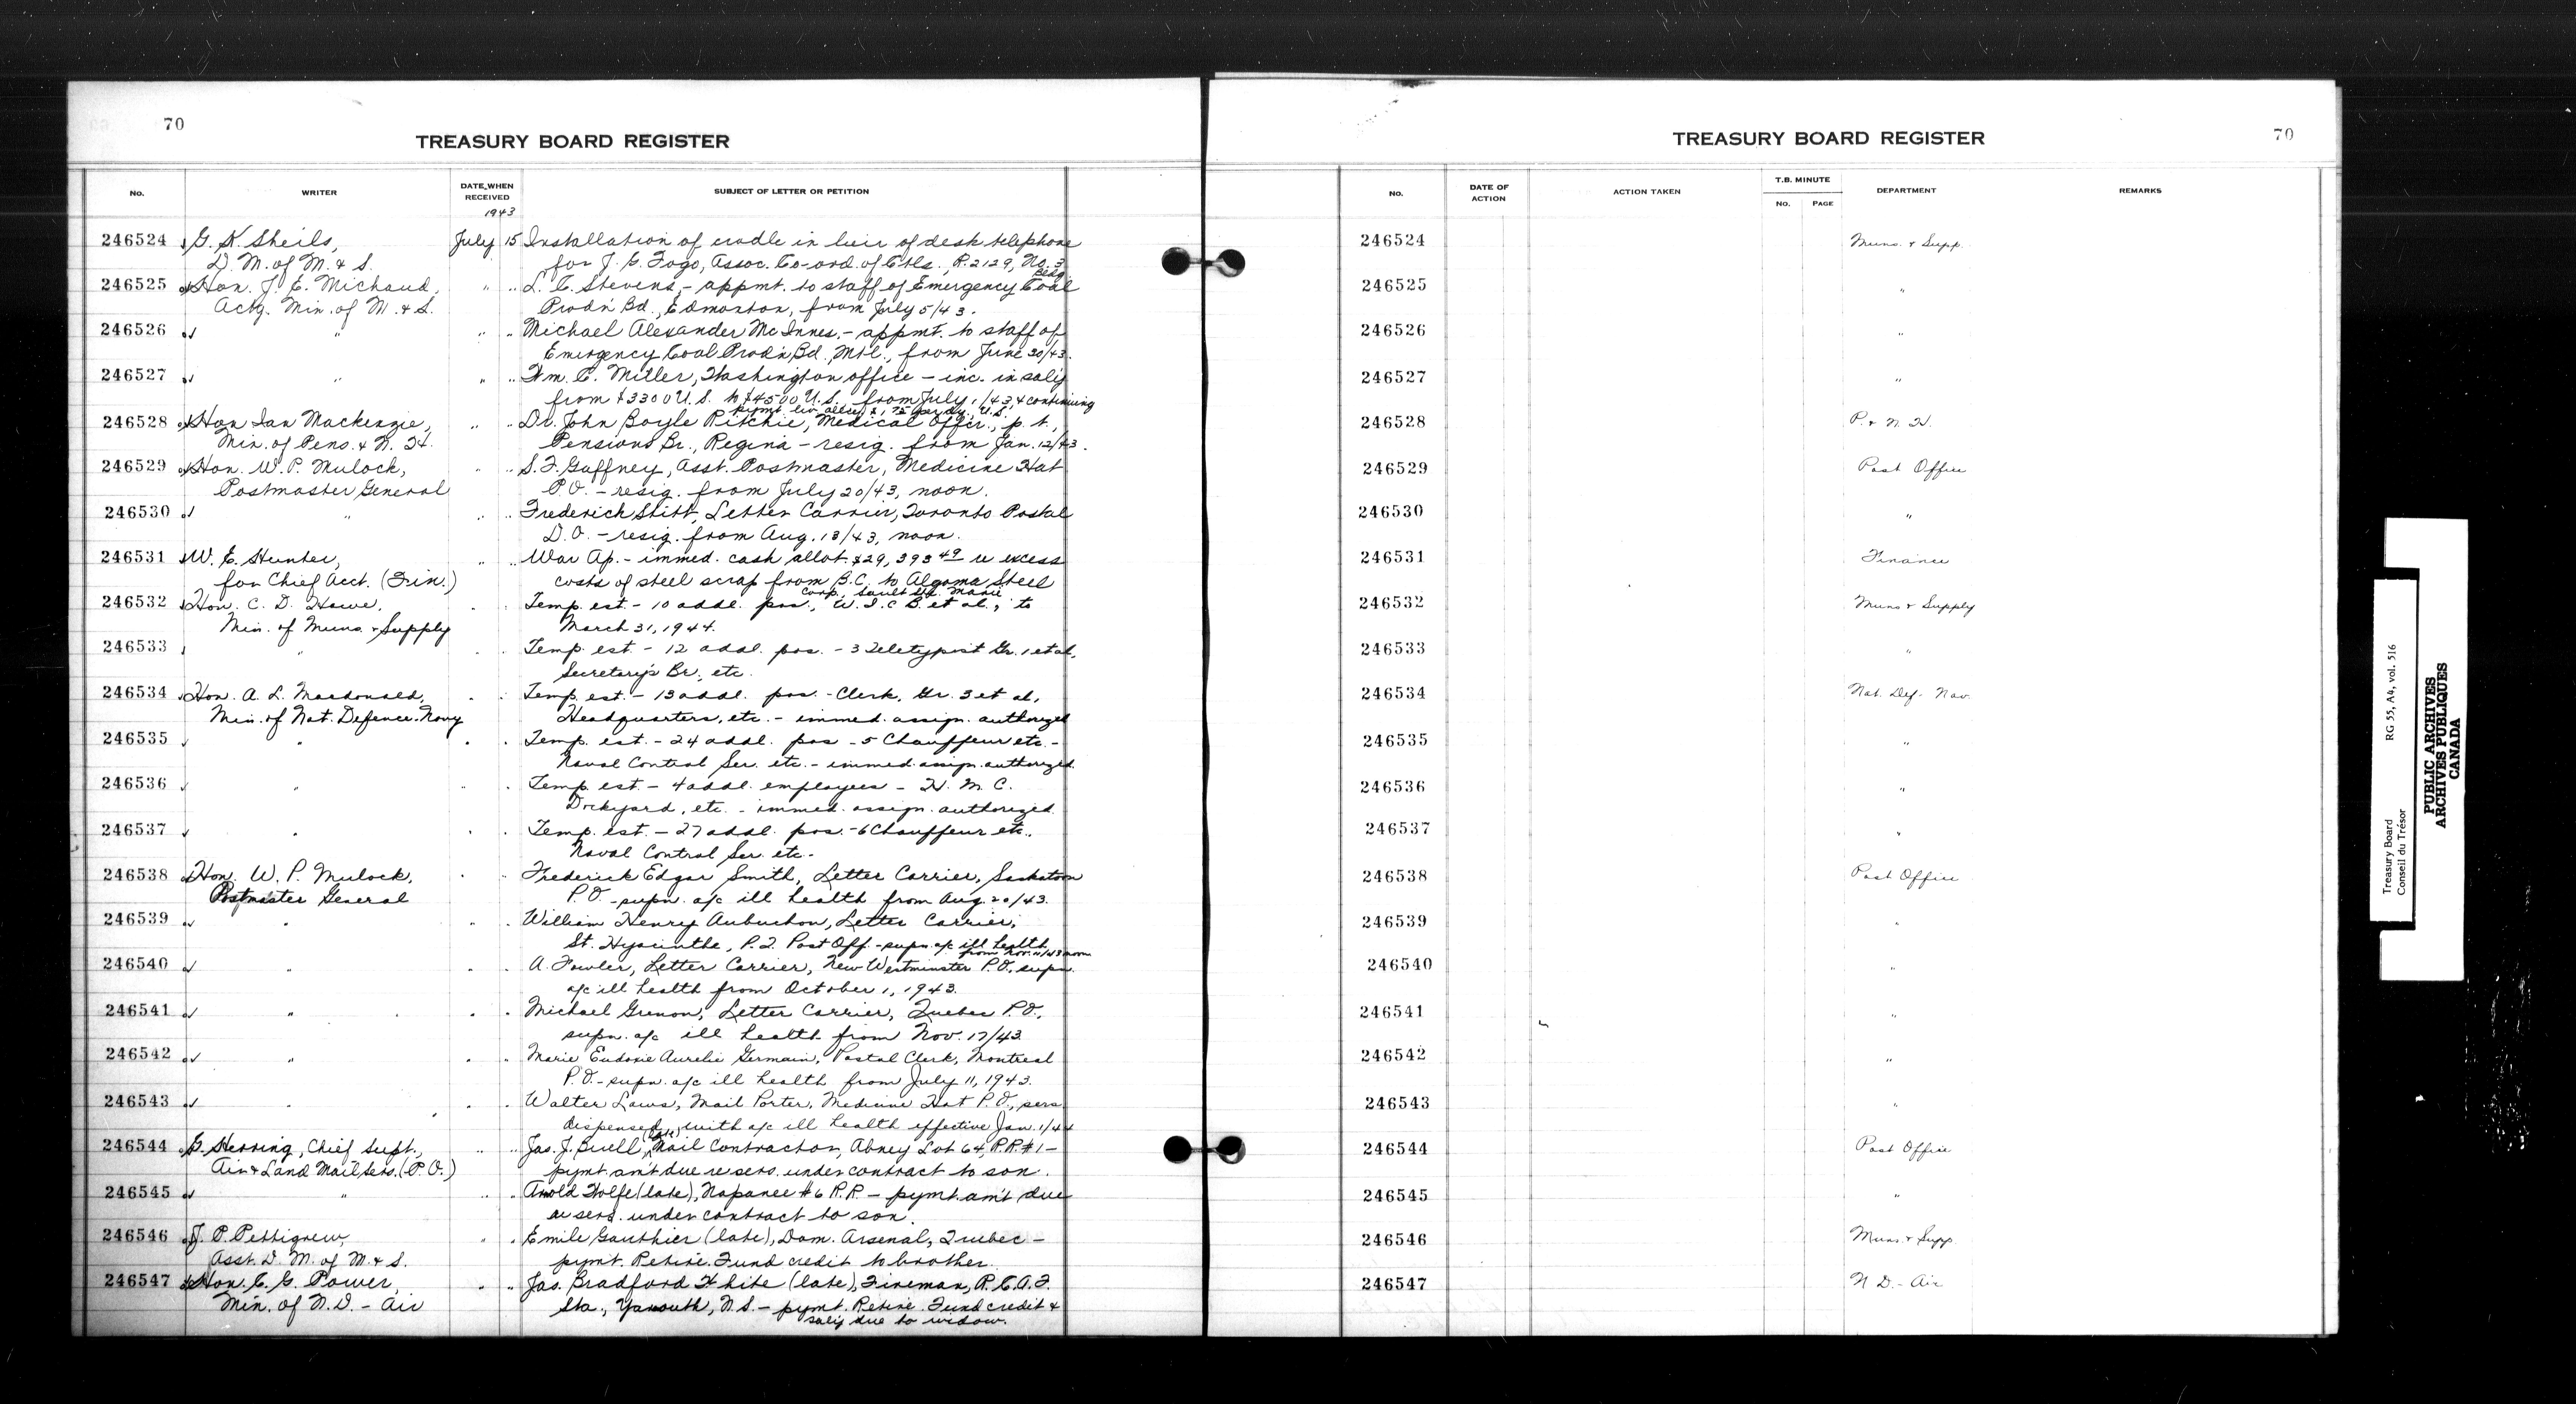 70
TREASURY BOARD REGISTER
No. WRITER DATE WHEN RECEIVED SUBJECT OF LETTER OR PETITION
1943
246524 G. K. Sheils, July 15 Installation of cradle in lieu of desk telephone
D. M. of M. & S. for J. G. Fogo, Assoc. Co-ord. of Ctls., R.2129, No. 3
Bldg.
246525 Hon. J. E. Michaud, " " L. C. Stevens, - appmt. to staff of Emergency Coal
Actg. Min. of M. & S. Prod'n Bd., Edmonton, from July 5/43.
246526 " " " Michael Alexander McInnes, - appmt. to staff of
Emergency Coal Prod'n Bd., Mtl., from June 30/43.
246527 " " " Wm. C. Miller, Washington office - inc. in sal'y
from $3300 U.S. to $4500 U.S. from July 1/43, & continuing
pymt. liv. allce per dy. U.S.
246528 Hon Ian Mackenzie, " " Dr. John Boyle Ritchie, Medical Offir., p. t.,
Min. of Pens. & N. H. Pensions Br., Regina - resig. from Jan. 12/43.
246529 Hon. W. P. Mulock, " " S. F. Gaffney, Asst. Postmaster, Medicine Hat
Postmaster General P.O. - resig. from July 20/43, noon.
246530 " " " Frederick Stitt, Letter Carrier, Toronto Postal
D.O. - resig. from Aug. 18/43, noon.
246531 W. E. Hunter, " " War Ap. - immed. cash allot. $29,393 49 re excess
for Chief Acct. (Fin.) costs of steel scrap from B.C. to Algoma Steel
Corp., Sault Ste. Marie
246532 Hon. C. D. Howe, " Temp. est. - 10 addl. pos., W. I. C. B. et al., to
Min. of Muns. & Supply March 31, 1944.
246533 " " " Temp. est. - 12 addl. pos. - 3 Teletypist Gr. 1 et al,
Secretary's Br., etc.
246534 Hon. A. L. Macdonald, " " Temp. est. - 13 addl. pos. - Clerk, Gr. 3 et al,
Min. of Nat. Defence-Navy Headquarters, etc. - immed. assign. authorized
246535 " " " Temp. est. - 24 addl. pos - 5 Chauffeur etc. -
Naval Control Ser. etc. - immed. assign. authorized.
246536 " " " Temp. est. - 4 addl. employees - H. M. C.
Dockyard, etc. - immed. assign. authorized.
246537 " " " Temp. est. - 27 addl. pos. - 6 Chauffeur etc.,
Naval Control Ser. etc.
246538 Hon. W. P. Mulock, " " Frederick Edgar Smith, Letter Carrier, Saskatoon
Postmaster General P.O. - supn. a/c ill health from Aug. 20/43.
246539 " " " William Henry Aubuchon, Letter Carrier,
St. Hyacinthe, P.Q. Post Off. - supn. a/c ill health
from Nov. 11/43 noon
246540 " " " A. Fowler, Letter Carrier, New Westminster P.O., supn.
a/c ill health from October 1, 1943.
246541 " " " Michael Grenon, Letter Carrier, Quebec P.O.,
supn. a/c ill health from Nov. 17/43.
246542 " " " Marie Eudoxie Aurelie Germain, Postal Clerk, Montreal
P.O. - supn. a/c ill health from July 11, 1943.
246543 " " " Walter Laws, Mail Porter, Medicine Hat P.O., sers.
dispensed with a/c ill health effective Jan. 1/44
246544 G. Herring, Chief Supt., " " Jas. J. Buell, (late) Mail Contractor, Abney Lot 64, R.R. #1 -
Air & Land Mail Sers. (P.O.) pymt. am't due re sers. under contract to son.
246545 " " " Arnold Wolfe (late), Napanee #6 R.R. - pymt. am't due
re sers. under contract to son.
246546 J. P. Pettigrew, " " Emile Gauthier (late), Dom. Arsenal, Quebec -
Asst. D. M. of M. & S. pymt. Retire. Fund credit to brother.
246547 Hon. C. G. Power, " " Jas. Bradford White (late), Fireman, R.C.A.F.
Min. of N.D. - Air Sta., Yarmouth, N.S. - pymt. Retire. Fund credit &
sal'y due to widow.
TREASURY BOARD REGISTER
70
No. DATE OF ACTION ACTION TAKEN T.B. MINUTE No. PAGE DEPARTMENT REMARKS
246524 Muns. & Supp.
246525 "
246526 "
246527 "
246528 P. & N. H.
246529 Post Office
246530 "
246531 Finance
246532 Muns & Supply
246533 "
246534 Nat. Def. Nav.
246535 "
246536 "
246537 "
246538 Post Office
246539 "
246540 "
246541 "
246542 "
246543 "
246544 Post Office
246545 "
246546 Muns. & Supp.
246547 N D. - Air
Treasury Board RG 55, A4, vol. 516
Conseil du Trésor
PUBLIC ARCHIVES
ARCHIVES PUBLIQUES
CANADA